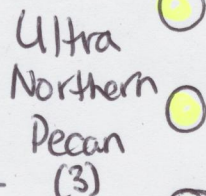 Ultra
Northern
Pecan
(3)